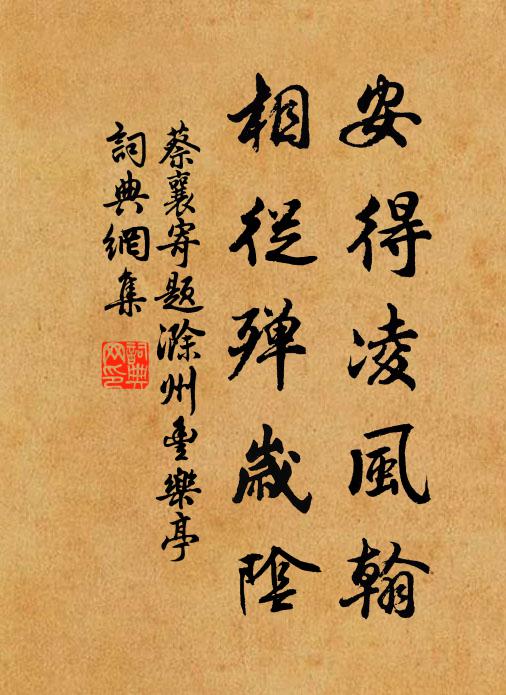 安得凌風翰
相從殫歲陰
蔡襄寄題滁州豐樂亭
詞典網集
詞典網印